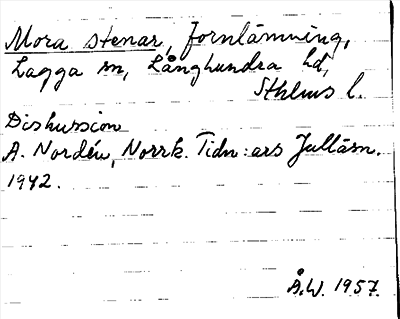 Mora stenar, fornlämning,
Lagga sn, Långhundra hd,
Sthlms l.
Diskussion
A. Nordén, Norrk. Tidn:ars Julläsn.
1942.
Å.W. 1957.